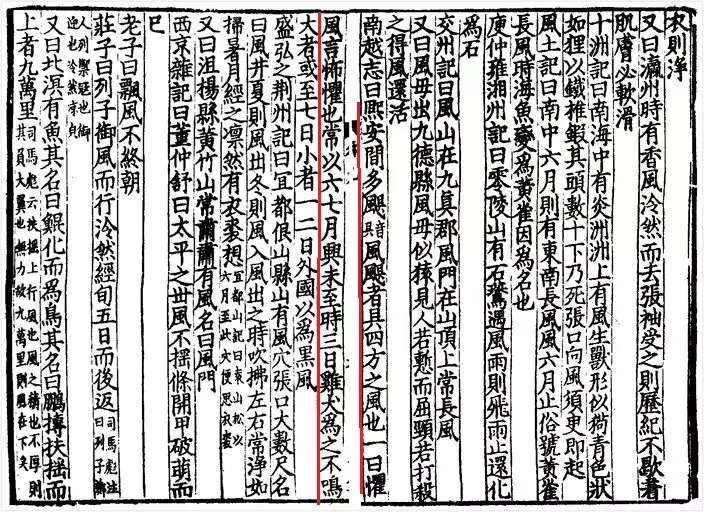 衣則淨
又曰瀛州時有香風泠然而去張袖受之則歷紀不歇著
肌膚必軟滑
十洲記曰南海中有炎洲洲上有風生獸形似猗青色狀
如狸以鐵椎鍛其頭數十下乃死張口向風須臾即起
風土記曰南中六月則有東南長風風六月止俗號黃雀
長風時海魚變為黃雀因為名也
庾仲雍湘州記曰零陵山有石鷰遇風雨則飛雨止還化
為石
交州記曰風山在九真郡風門在山頂上常長風
又曰風母出九德縣風母似猿見人若慙而屈頸若打殺
之得風還活
南越志曰熈安間多颶音具風颶者具四方之風也一曰懼
風言怖懼也常以六七月興未至時三日雞犬為之不鳴
大者或至七日小者一二日外國以為黑風
盛弘之荆州記曰宜都佷山縣山有風穴張口大數尺名
曰風井夏則風出冬則風入風出之時吹拂左右常淨如
掃暑月經之凛然有衣裘想宜都山記曰袁山松以六月至此穴便思衣裘
又曰沮楊縣黃竹山常肅肅有風名曰風門
西京雜記曰董仲舒曰太平之世風不搖條開甲破萌而
已
老子曰飄風不終朝
莊子曰列子御風而行泠然經旬五日而後返司馬彪注曰列子鄭
人列禦冦也御迎也泠然
又曰北溟有魚其名曰鯤化而為鳥其名曰鵬摶扶摇而
上者九萬里司馬彪云扶摇上行風也風之積也不厚則其負大翼也無力故九萬里則風在下矣